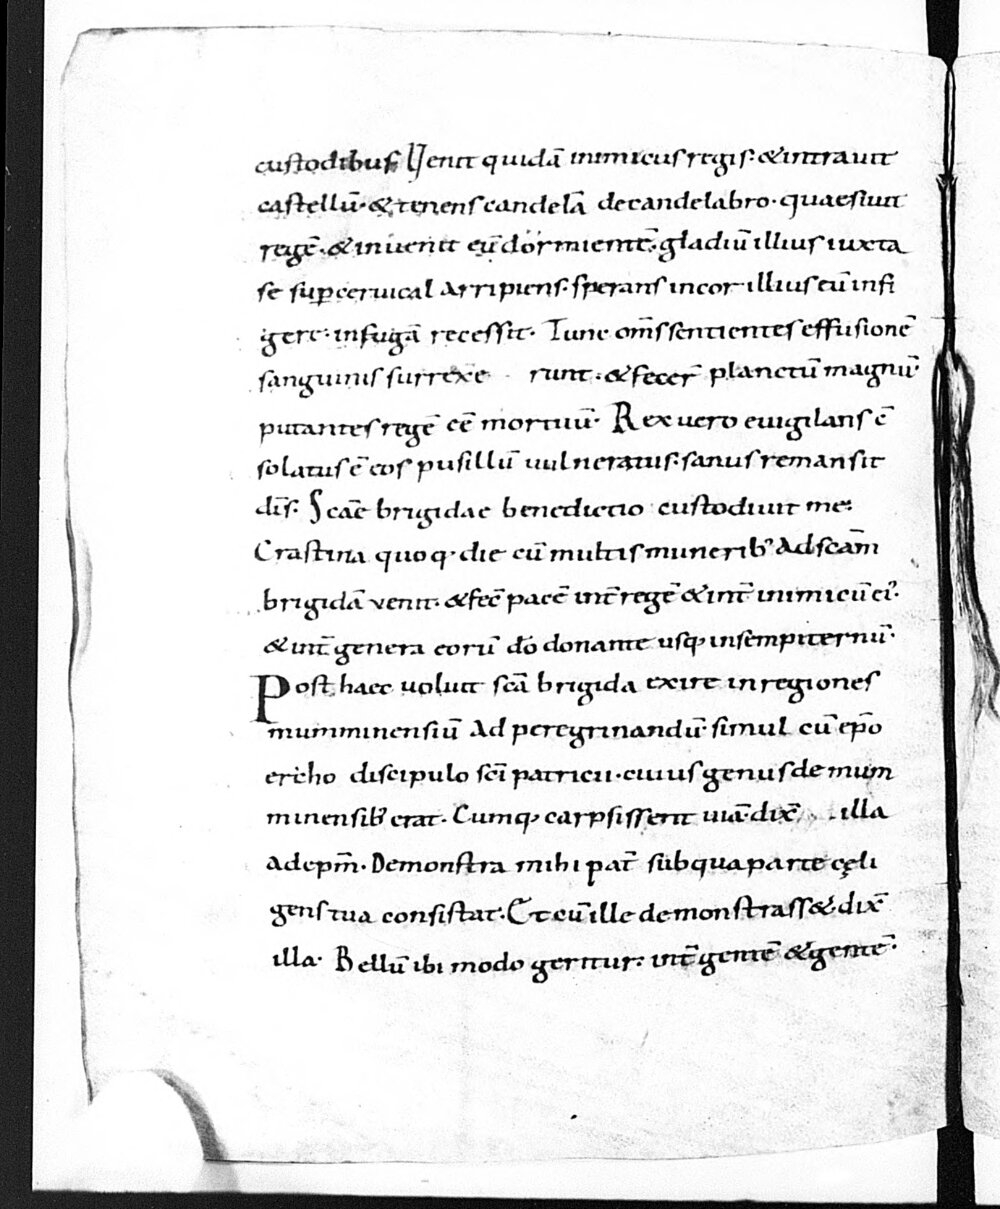 custodibus Uenit quidā inimicus regis· & intrauit
castellū· & tenens candelā de candelabro· quaesiuit
regē· & inuenit eū dormientē· gladiū illius iuxta
se sup ceruical arripiens· sperans in cor illius eū infi
gere· in fugā recessit· Tunc om̄s sentientes effusionē
sanguinis surrexe runt· & fecer̄ planctū magnū·
putantes regē eē mortuū· Rex uero euigilans c̄
solatus ē eos pusillū uulneratus· sanus remansit
dīs· Scāe brigidae benedictio custodiuit me·
Crastina quoq· die cū multis munerib' ad scām
brigidā venit· & fec̄ pacē int̄ regē & int̄ inimicū ei'·
& int̄ genera eorū dō donante usq· in sempiternū·
Post haec uoluit scā brigida exire in regiones
mumminensiū ad peregrinandū simul cū epō
ercho discipulo scī patricii· cuius genus de mum
minensib' erat· Cumq· carpsissent uiā· dix̄ illa
ad epm̄· Demonstra mihi pat̄ sub qua parte cęli
gens tua consistat· Et cū ille demonstrass&· dix̄
illa· Bellū ibi modo geritur· int̄ gentē & gentē·